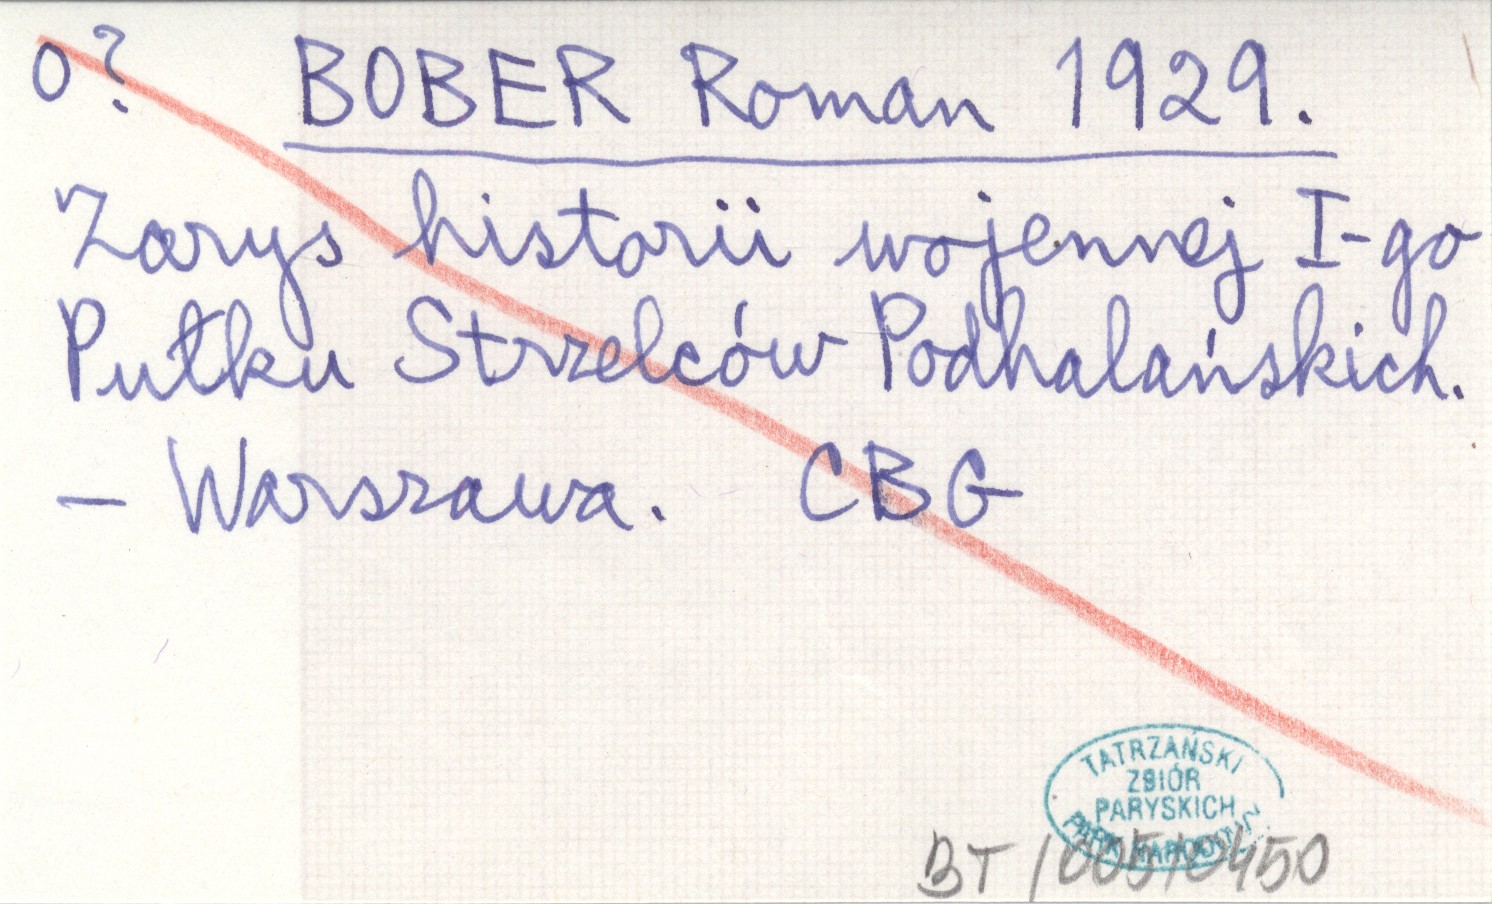 o? BOBER Roman 1929.
Zarys historii wojennej I-go
Pułku Strzelców Podhalańskich.
– Warszawa. CBG
TATRZAŃSKI
ZBIÓR
PARYSKICH
PARK NARODOWY
BT/005/0450